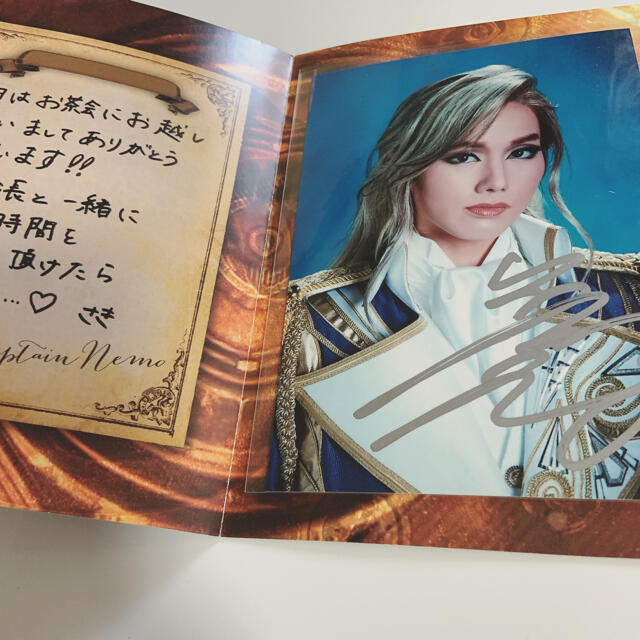 日はお茶会にお越し
いましてありがとう
います!!
長と一緒に
時間を
頂けたら
...♡ さき
ptain Nemo